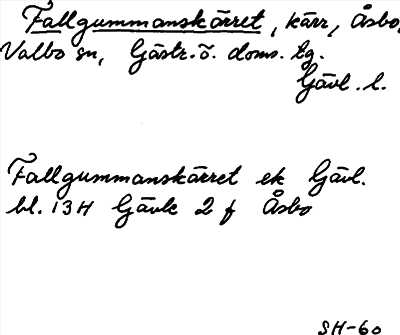 Fallgummanskärret, kärr, Åsbo,
Valbo sn, Gästr. ö. doms. tg.
Gävl. l.
Fallgummanskärret ek Gävl.
bl. 13H Gävle 2 f Åsbo
SH-60